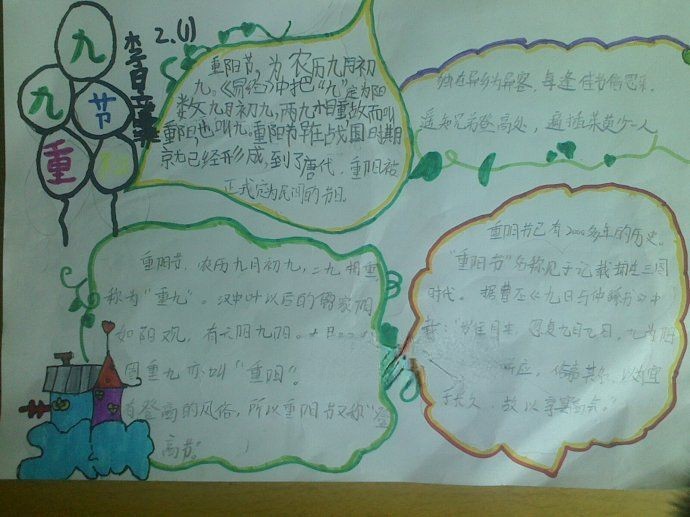 2.(1)
九
九
节
重
重阳节,为农历九月初
九。《易经》中把"九"定为阳
数,九月初九,两九相重,故而叫
重阳,也叫九。重阳节早在战国时期
就已经形成,到了唐代,重阳被
正式定为民间的节日。
独在异乡为异客,每逢佳节倍思亲。
遥知兄弟登高处,遍插茱萸少一人
重阳节,农历九月初九,二九相重
称为"重九"。汉中叶以后的儒家
如阳观,有六阴九阳。
因重九亦叫"重阳"。
有登高的风俗,所以重阳节又称"登
高节"。
重阳节已有2000多年的历史。
"重阳节"名称见于记载却在三国
时代。据曹丕《九日与仲
月来,忽复九月九日。九为阳
所应,俗嘉其名,以为宜
于长久,故以享宴高会。"